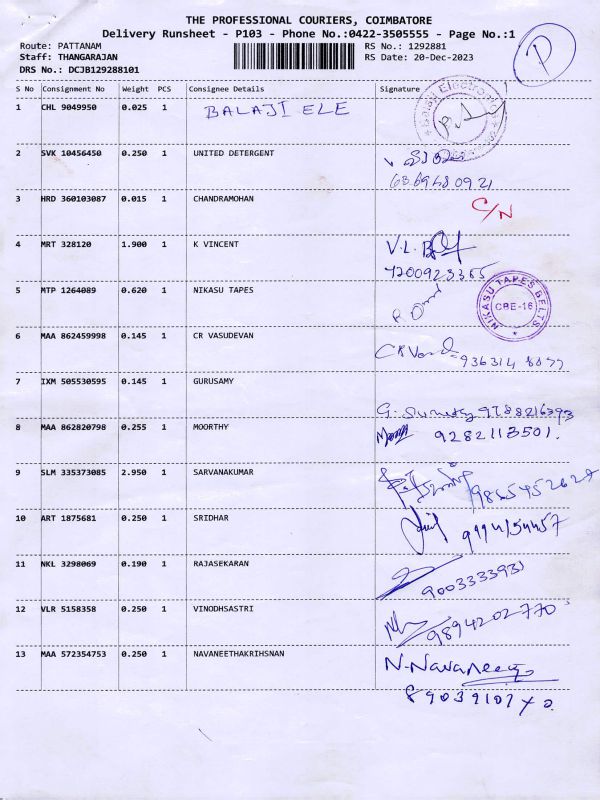 THE PROFESSIONAL COURIERS, COIMBATORE
Delivery Runsheet - P103 - Phone No.:0422-3505555 - Page No.:1
P
Route: PATTANAM RS No.: 1292881
Staff: THANGARAJAN RS Date: 20-Dec-2023
DRS No.: DCJB129288101
S No Consignment No Weight PCS Consignee Details Signature
1 CHL 9049950 0.025 1 BALAJI ELE
Balaji Electronic
2 SVK 10456450 0.250 1 UNITED DETERGENT
3 HRD 360103087 0.015 1 CHANDRAMOHAN C/N
4 MRT 328120 1.900 1 K VINCENT V.L.
7200923365
5 MTP 1264089 0.620 1 NIKASU TAPES
NIKASU TAPES BELTS
CBE-16
6 MAA 862459998 0.145 1 CR VASUDEVAN
7 IXM 505530595 0.145 1 GURUSAMY
9788216393
8 MAA 862820798 0.255 1 MOORTHY 9282113501.
9 SLM 335373085 2.950 1 SARVANAKUMAR
10 ART 1875681 0.250 1 SRIDHAR 9994154457
11 NKL 3298069 0.190 1 RAJASEKARAN
9003333931
12 VLR 5158358 0.250 1 VINODHSASTRI
9894202770
13 MAA 572354753 0.250 1 NAVANEETHAKRIHSNAN N.Navaneetha